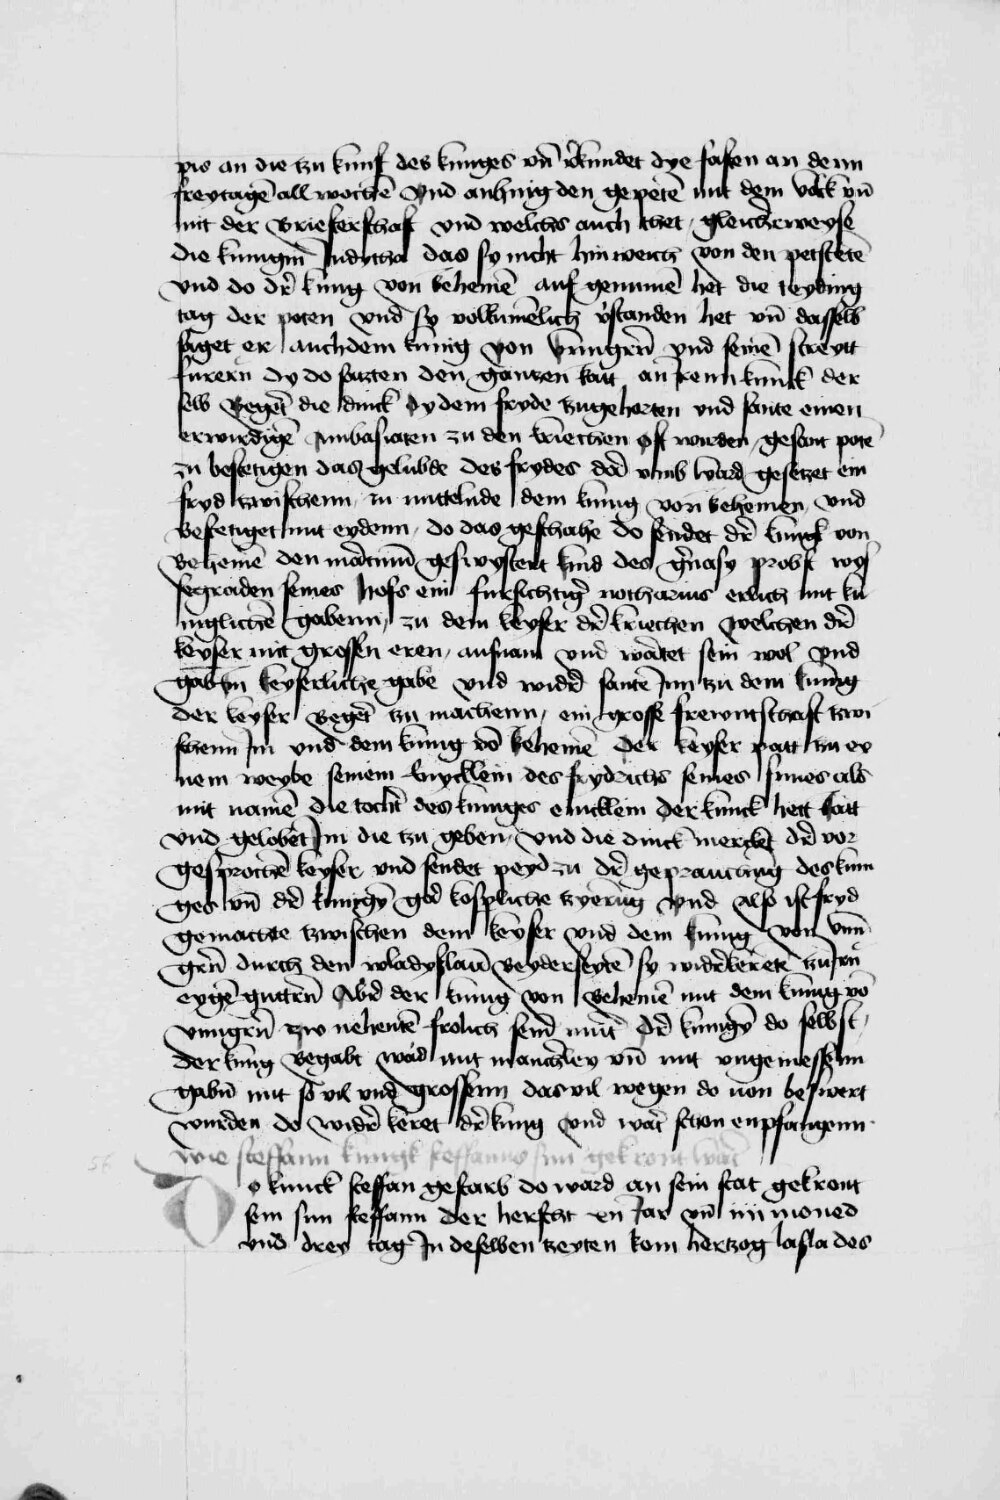 pis an die tzu kunft des kuniges vn̄ v̓kundet dye fasten an denn
freytagē all wochē vnd anhnig den gepetē mit dem volck vn̄
mit der Briesterschaft vnd welchs auch thet gleicherweyse
die kunigin Judytha das sy nicht hin weich von den petstetē
vnd do dr̄ kung von behemē auf genumē het die teyding
tag der poten vnd sy volkumēlich v̓standen het vn̄ dasselb
saget er auch dem kunig von vnngern̄ vnd seinē streytt
furern dy do satzten den gantzen ratt an kunck der
selb Begert die dinck dy dem fryde tzugehorten vnd sante einen
erwirdigē Ambasiaten zu den kriechen oft wurden gesant potē
zu bestetigen das gelubde des frydes dar vmb ward gesetzet ein
fryd tzwischenn zu mittelnde dem kunig von behemen vnd
Befestiget mit eydenn do das geschahe do sendet dr̄ kungk von
Behemē den martinū geswystert kind des probst wys
segraden seines hofs ein fursichtigr̄ notharius erlich mit ku
niglichē gabenn zu dem keyser dr̄ kriechen welchen dr̄
keyser mit grossen eren aufnam vnd wartet sein wol vnd
gab im keyserliche gabe vnd widr̄ santē Im tzu dem kunig
der keyser Begert tzu machenn ein grosse frewntschaft tzwi
schenn Im vnd dem kunig vō behemē Der keyser patt zu ey
nem weybe seinem des frydrichs seines sunes als
mit namē die tochter des kuniges enicklein der kunck hett ratt
vnd gelobet Im die tzu geben vnd die dinck mercket dr̄ vor
gesprochē keyser vnd sendet peyd zu dr̄ des kuni
ges vn̄ dr̄ kunigȳ gar kospliche tzyerūg vnd Also ist fryd
gemachte tzwischen dem keyser vnd dem kunig von vnn
grn̄ durch den wladyslaū Beyderseytē sy widr̄kerētē tzu irn̄
eygē guttrn̄ Abr̄ der kunig von Behemē mit dem kunig vō
vnngrn̄ zw nehentē frolich send mitt dr̄ kunigȳ do selbst
der kung Begabt ward mit mancherley vn̄ mit vngemessenn
gabn̄ mit so vil vnd grossenn das vil wegen do von beswert
wurden do widr̄ keret dr̄ kung vnd wart schon enpfangenn
wie steffann kungk steffanns sun gekront wart
Do kunck steffan gestarb do ward an sein stat gekront
sein sun steffann der herscht xn Jar vn̄ iiii moned
vnd drey tag In deselben tzeyten kom hertzog lasla des